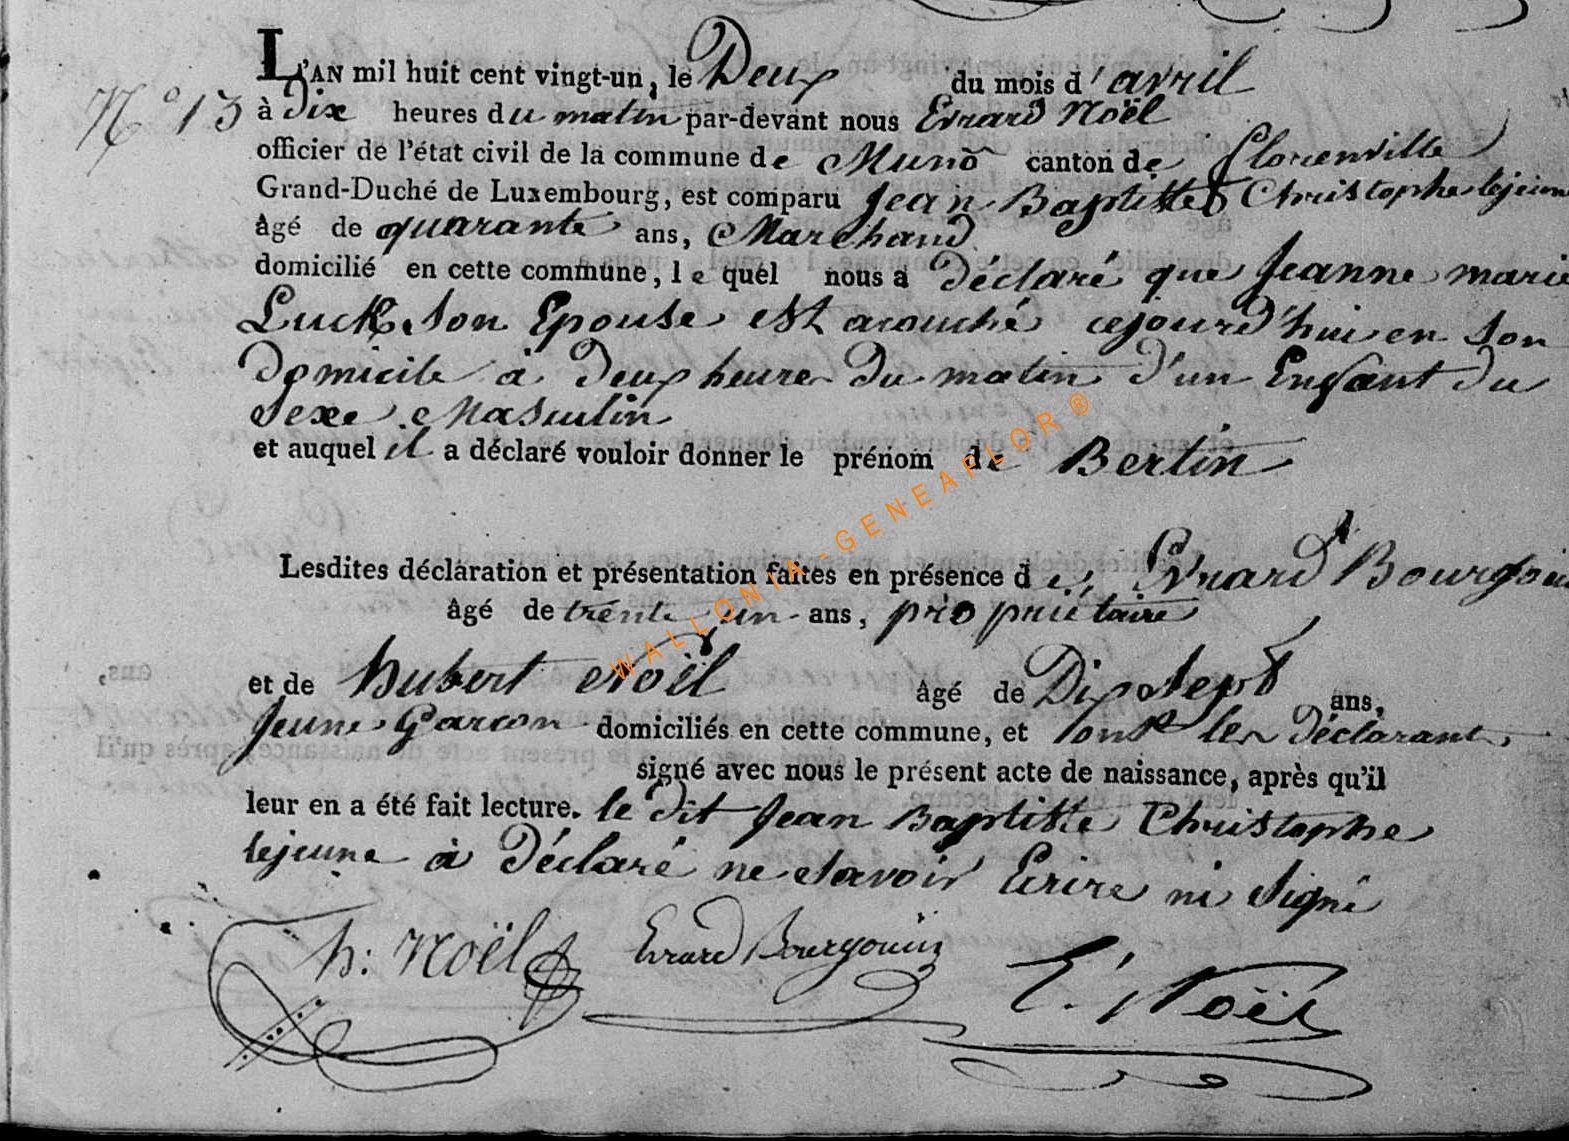 L'AN mil huit cent vingt-un, le Deux du mois d'avril
N° 13 à Dix heures du matin par-devant nous Evrard Noël
officier de l'état civil de la commune de Munõ canton de florenville
Grand-Duché de Luxembourg, est comparu Jean Baptiste Christophe lejeune
âgé de quarante ans, Marchand
domicilié en cette commune, le quel nous a Déclaré que Jeanne marie
Luck Son Epouse est acouché cejourd'hui en Son
Domicile à Deux heures Du matin D'un Enfant Du
Sexe Masculin
et auquel il a déclaré vouloir donner le prénom de Bertin
Lesdites déclaration et présentation faites en présence de Evrard Bourgoin
âgé de trente un ans, propriétaire
et de hubert Noël âgé de Dix Sept ans,
Jeune Garcon domiciliés en cette commune, et ont les Déclarant,
signé avec nous le présent acte de naissance, après qu'il
leur en a été fait lecture. le dit Jean Baptiste Christophe
lejeune à Déclaré ne Savoir Ecrire ni Signé
h: Noël Evrard Bourgouin E. Noël
WALLONIA-GENEAFLOR ®